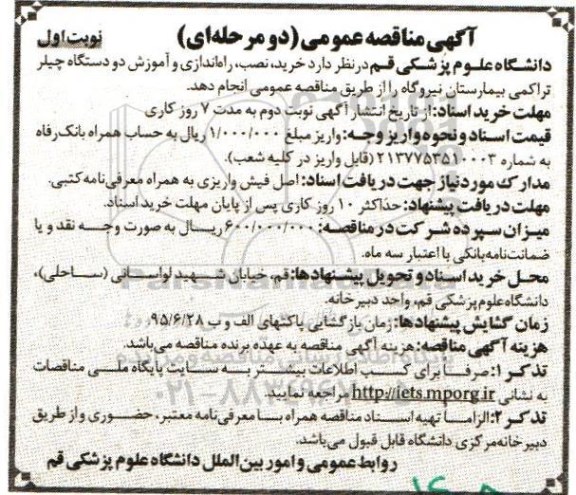 آگهی مناقصه عمومی (دو مرحله‌ای)
نوبت اول
دانشگاه علوم پزشکی قم در نظر دارد خرید، نصب، راه‌اندازی و آموزش دو دستگاه چیلر
تراکمی بیمارستان نیروگاه را از طریق مناقصه عمومی انجام دهد.
مهلت خرید اسناد: از تاریخ انتشار آگهی نوبت دوم به مدت ۷ روز کاری
قیمت اسناد و نحوه واریز وجه: واریز مبلغ ۱/۰۰۰/۰۰۰ ریال به حساب همراه بانک رفاه
به شماره ۲۱۳۷۷۵۳۵۱۰۰۰۳ (قابل واریز در کلیه شعب).
مدارک مورد نیاز جهت دریافت اسناد: اصل فیش واریزی به همراه معرفی‌نامه کتبی.
مهلت دریافت پیشنهاد: حداکثر ۱۰ روز کاری پس از پایان مهلت خرید اسناد.
میزان سپرده شرکت در مناقصه: ۶۰۰/۰۰۰/۰۰۰ ریال به صورت وجه نقد و یا
ضمانت‌نامه بانکی با اعتبار سه ماه.
محل خرید اسناد و تحویل پیشنهادها: قم، خیابان شهید لواسانی (ساحلی)،
دانشگاه علوم پزشکی قم، واحد دبیرخانه.
زمان گشایش پیشنهادها: زمان بازگشایی پاکتهای الف و ب ۹۵/۶/۲۸
هزینه آگهی مناقصه: هزینه آگهی مناقصه به عهده برنده مناقصه می‌باشد.
تذکر ۱: صرفا برای کسب اطلاعات بیشتر به سایت پایگاه ملی مناقصات
به نشانی http://iets.mporg.ir مراجعه نمایید.
تذکر ۲: الزاما تهیه اسناد مناقصه همراه با معرفی‌نامه معتبر، حضوری و از طریق
دبیرخانه مرکزی دانشگاه قابل قبول می‌باشد.
روابط عمومی و امور بین الملل دانشگاه علوم پزشکی قم